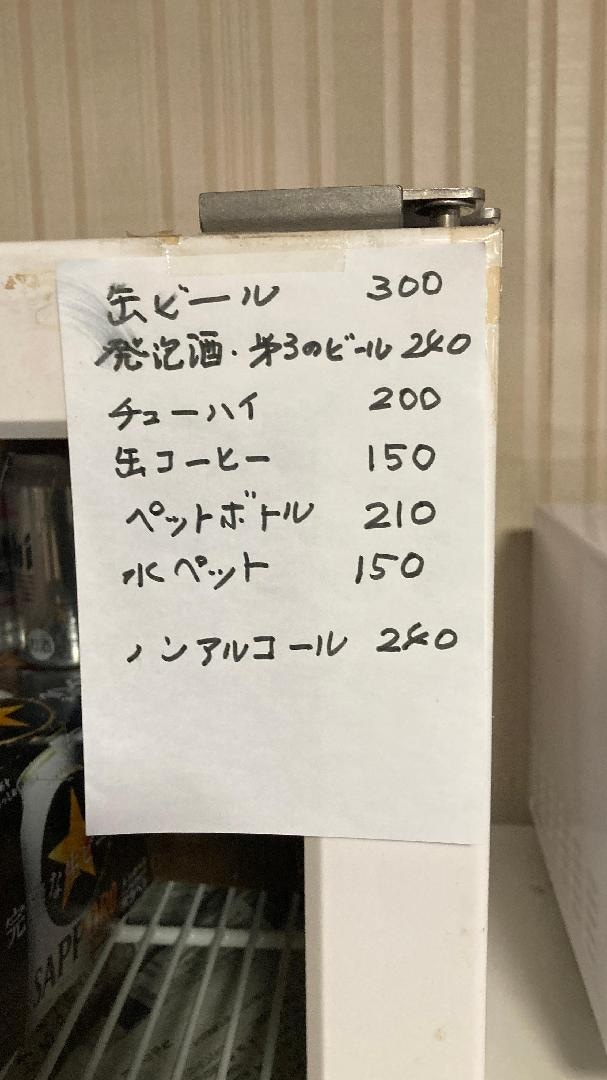 缶ビール 300
発泡酒・第3のビール 240
チューハイ 200
缶コーヒー 150
ペットボトル 210
水ペット 150
ノンアルコール 240
SAPP